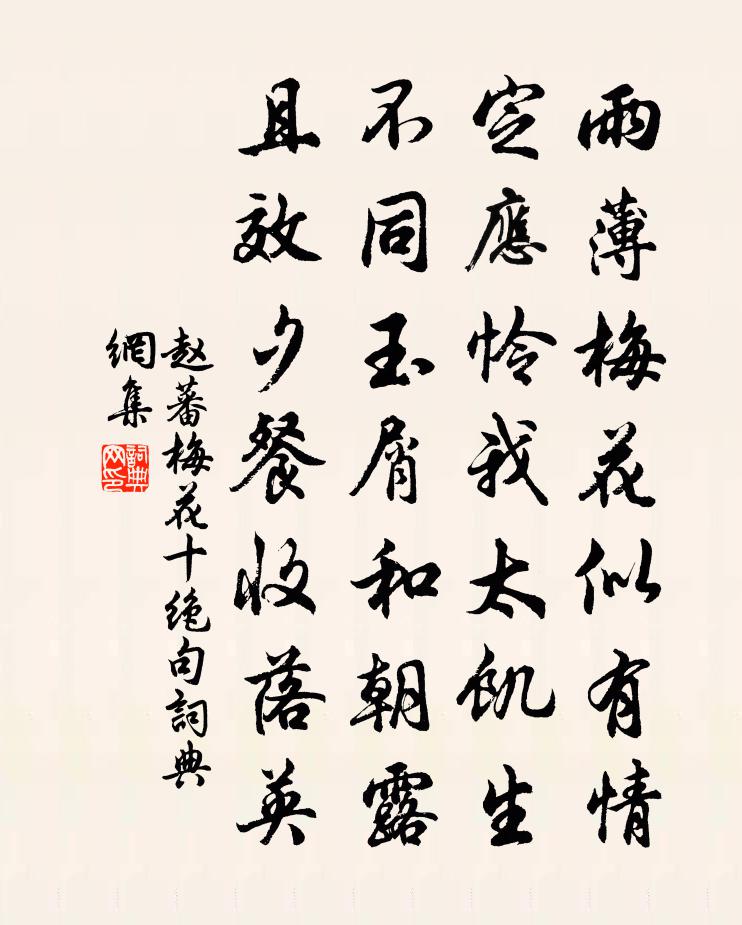 雨薄梅花似有情
定應怜我太飢生
不同玉屑和朝露
且效夕餐收落英
赵蕃梅花十绝句詞典
網集
詞典
网印